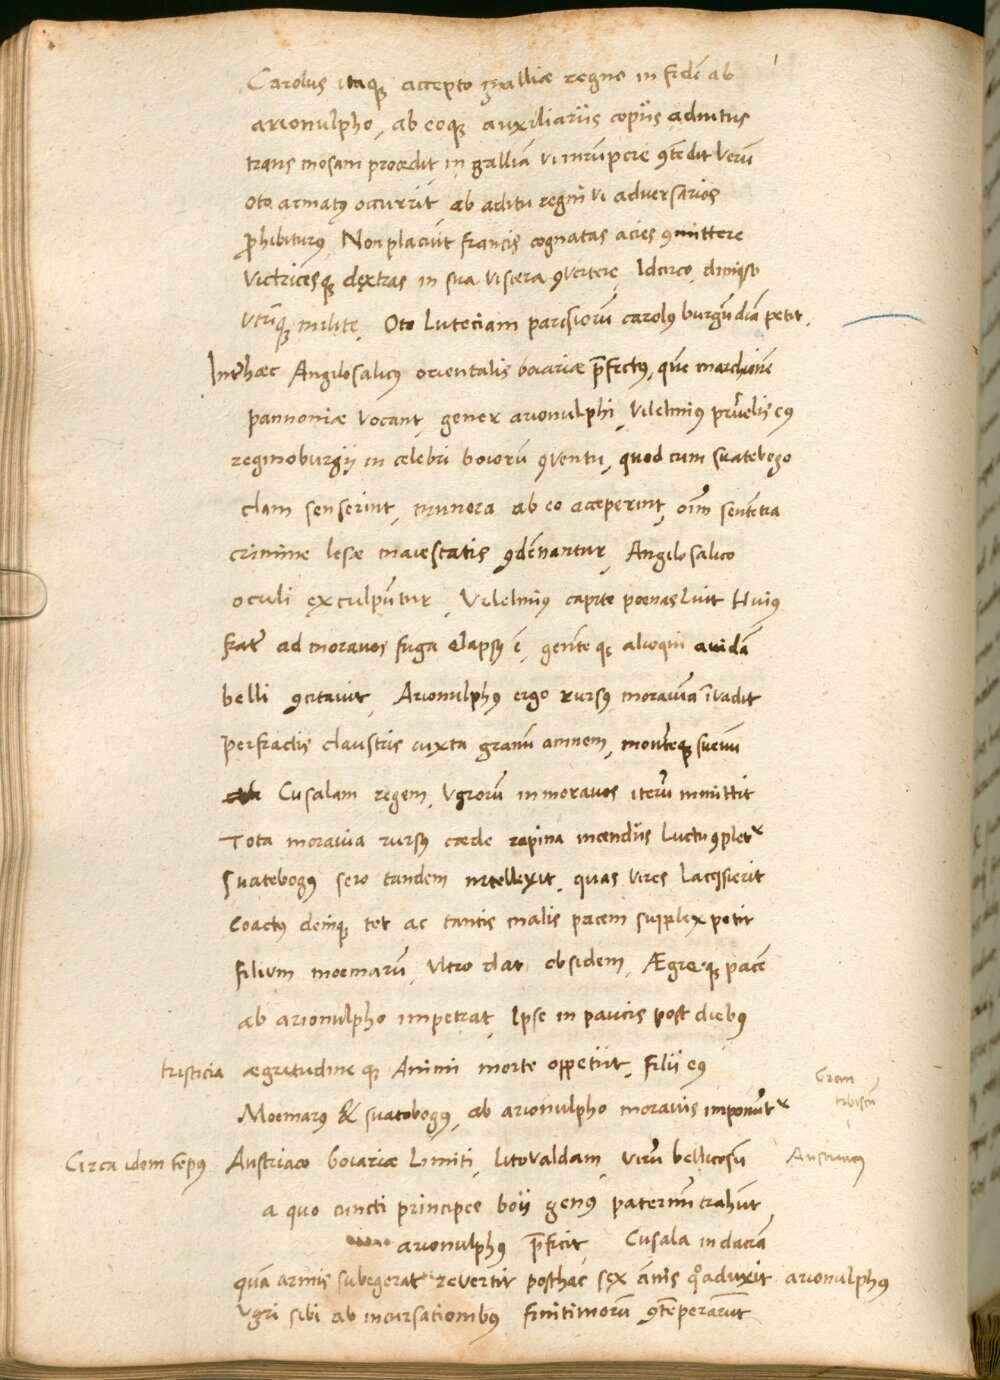 Carolus itaq accepto galliæ regno in fidē ab
arionulpho, ab eoq auxiliariis copiis adiutus
trans mosam proœdit in galliā vi inrūpere ꝯtēdit Verū
Oto armatꝰ occurrit ab aditu regni vi adversarios
ꝓhibiturꝰ, Non placuit francis cognatas acies ꝯmittere
Victricesq dextras in sua viscera ꝯvertere, Idcirco, dimisso
Vtrūq milite, Oto Luteciam parisiorū carolꝰ burgūdiā petit.
Int̓hæc Angilosalicꝰ orientalis boiariæ p̄fectꝰ, quē marchionē
pannoniæ vocant, gener arionulphi, Vilelmiꝰ pr̄uelis eiꝰ
reginoburgij in celebri boiorū ꝯventu, quod cum suatebogo
clam senserint, munera ab eo acceperint, oīm sentētia
crimine lesæ maiestatis ꝯdēnantur, Angilosalico
oculi exculpūtur, Vilelmiꝰ capite poenas luit Huiꝰ
frat̓ ad moravos fuga elapsꝰ ē, gentē q alioqui avidā
belli ꝯcitavit, Arionulphꝰ ergo rursꝰ moraviā īvadit
perfractis claustris iuxta granū amnem, montēq suevū
Cusalam regem, Vgrorū in moravos iterū inmittit
Tota moravia rursꝰ cæde rapina incendiis luctu ꝯplet
Suatebogꝰ sero tandem intellexit, quas vires lacessierit
Coactꝰ deniq tot ac tantis malis pacem supplex petit
filium moemarū, vltro dat obsidem, Ægre q pacē
ab arionulpho impetrat, Ipse in paucis post diebꝰ
tristicia ægritudine q Animi morte oppetiit, filii eiꝰ
Moemarꝰ & suatobogꝰ, ab arionulpho moravis imponūt
Circa idem tēpꝰ Austriaco boiariæ Limiti, litovaldam, virū bellicosū
a quo cuncti principes boij genꝰ paternū trahūt
arionulphꝰ p̄ficit, Cusala in daciā
quā armis subegerat revertit posthac sex ānis qͦ aduxit arionulphꝰ
Vgri sibi ab incursationibꝰ finitimorū ꝯtēperarūt